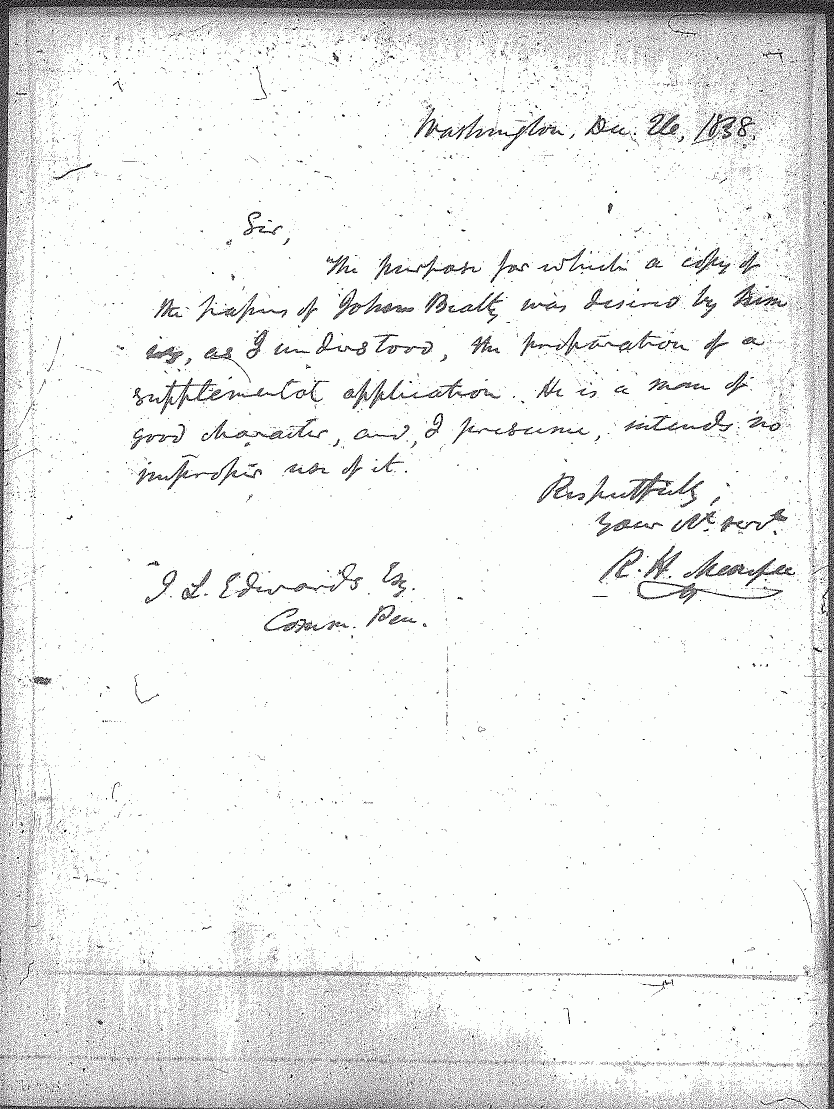 Washington, Dec. 26, 1838.
Sir,
The purpose for which a copy of
the papers of Johann Beatty was desired by him
is, as I understood, the preparation of a
supplemental application. He is a man of
good character, and, I presume, intends no
improper use of it.
Respectfully,
your obt. servt.
R. H.
J. L. Edwards Esq.
Comm. Pen.